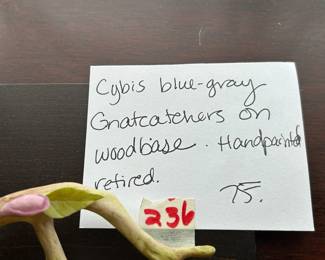 Cybis blue-gray
Gnatcatchers on
woodbase. Handpainted
retired.
75.
236